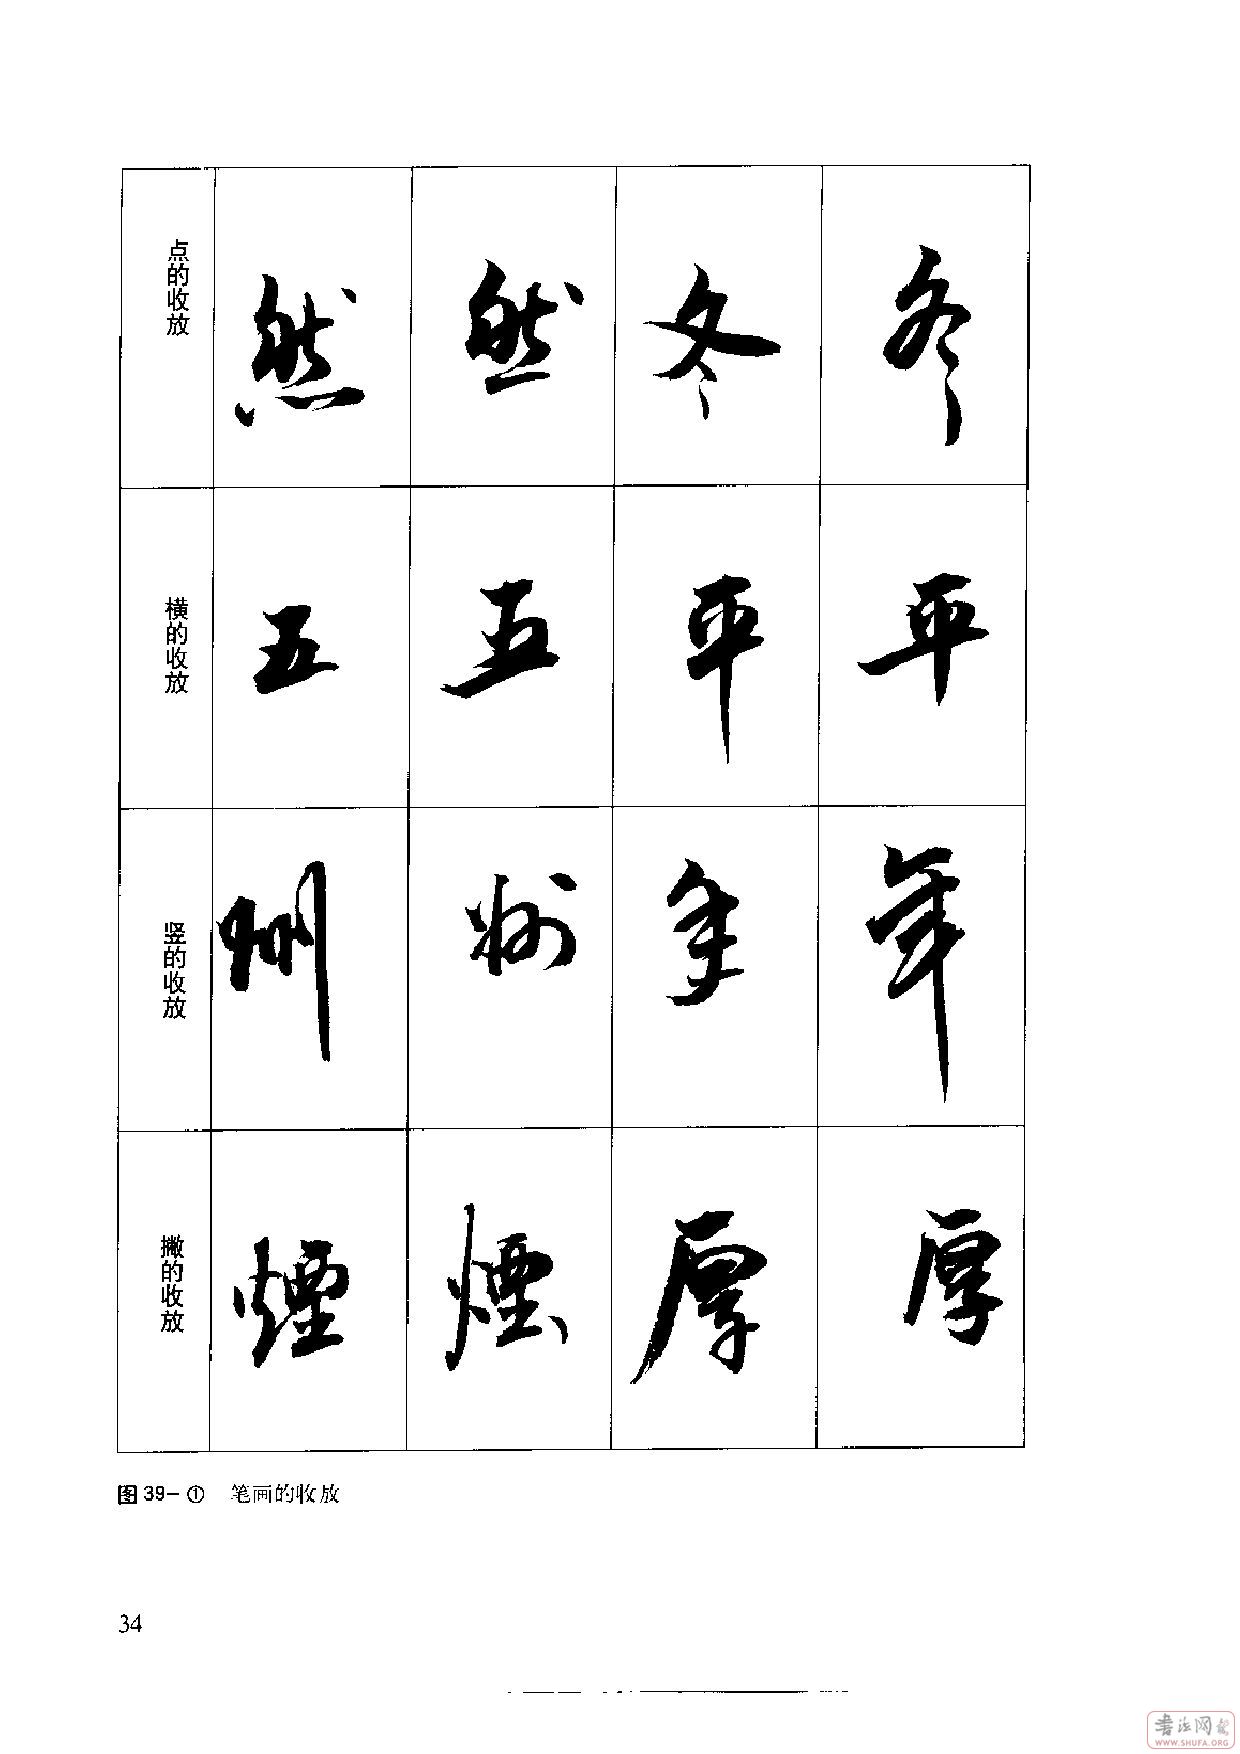 点的收放
然 然 冬 冬
横的收放
五 五 平 平
竖的收放
州 州 年 年
撇的收放
煙 煙 厚 厚
图39-① 笔画的收放
34
書法网
WWW.SHUFA.ORG